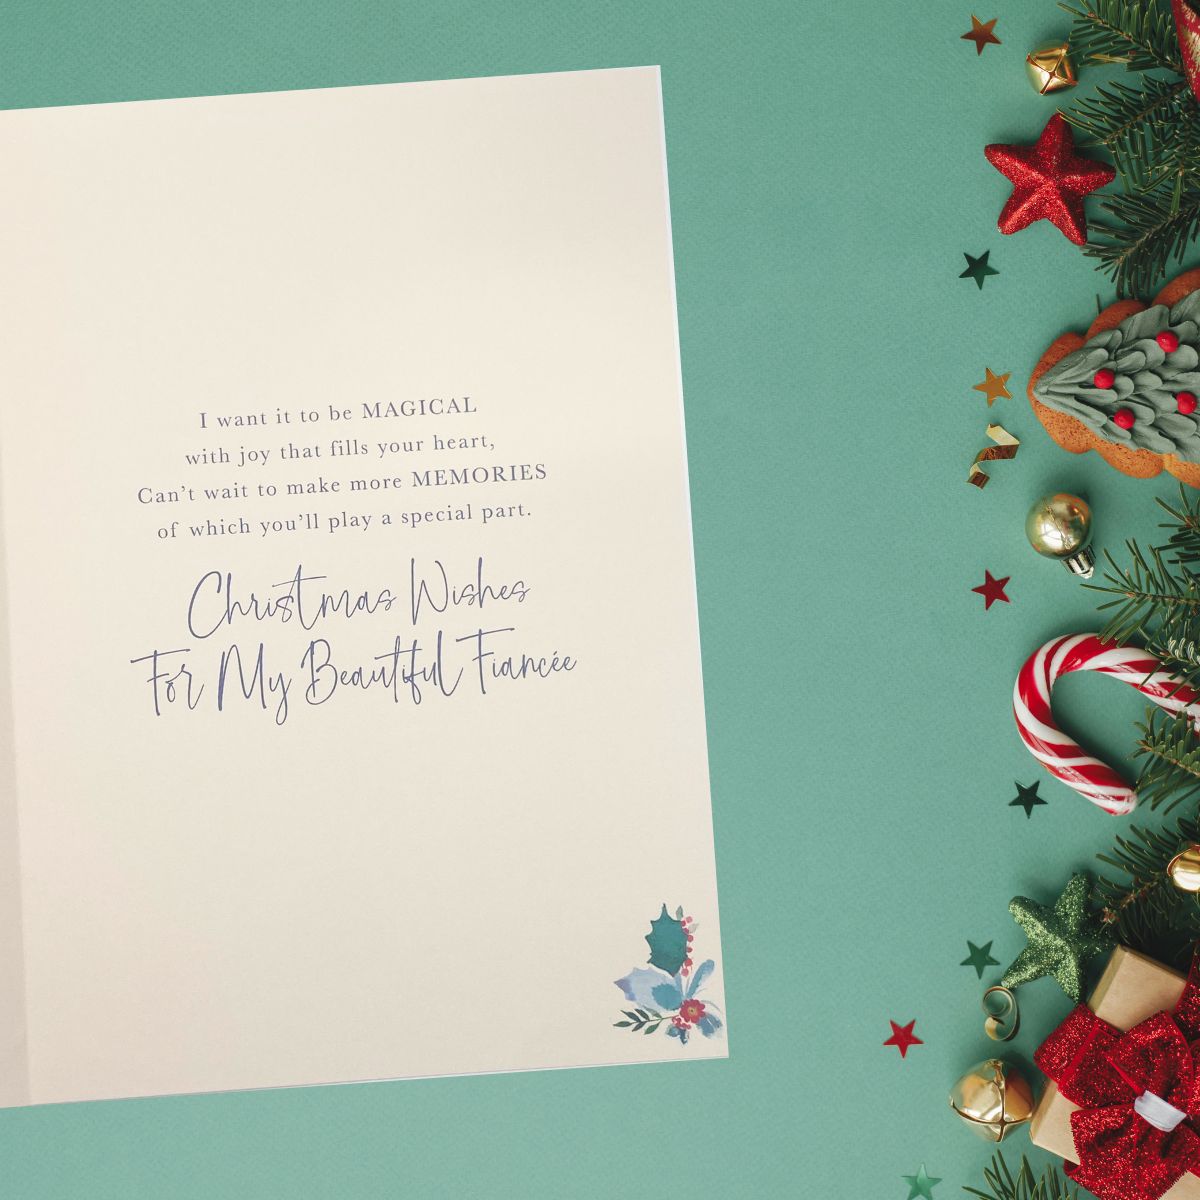 I want it to be MAGICAL
with joy that fills your heart,
Can't wait to make more MEMORIES
of which you'll play a special part.
Christmas Wishes
For My Beautiful Fiancée